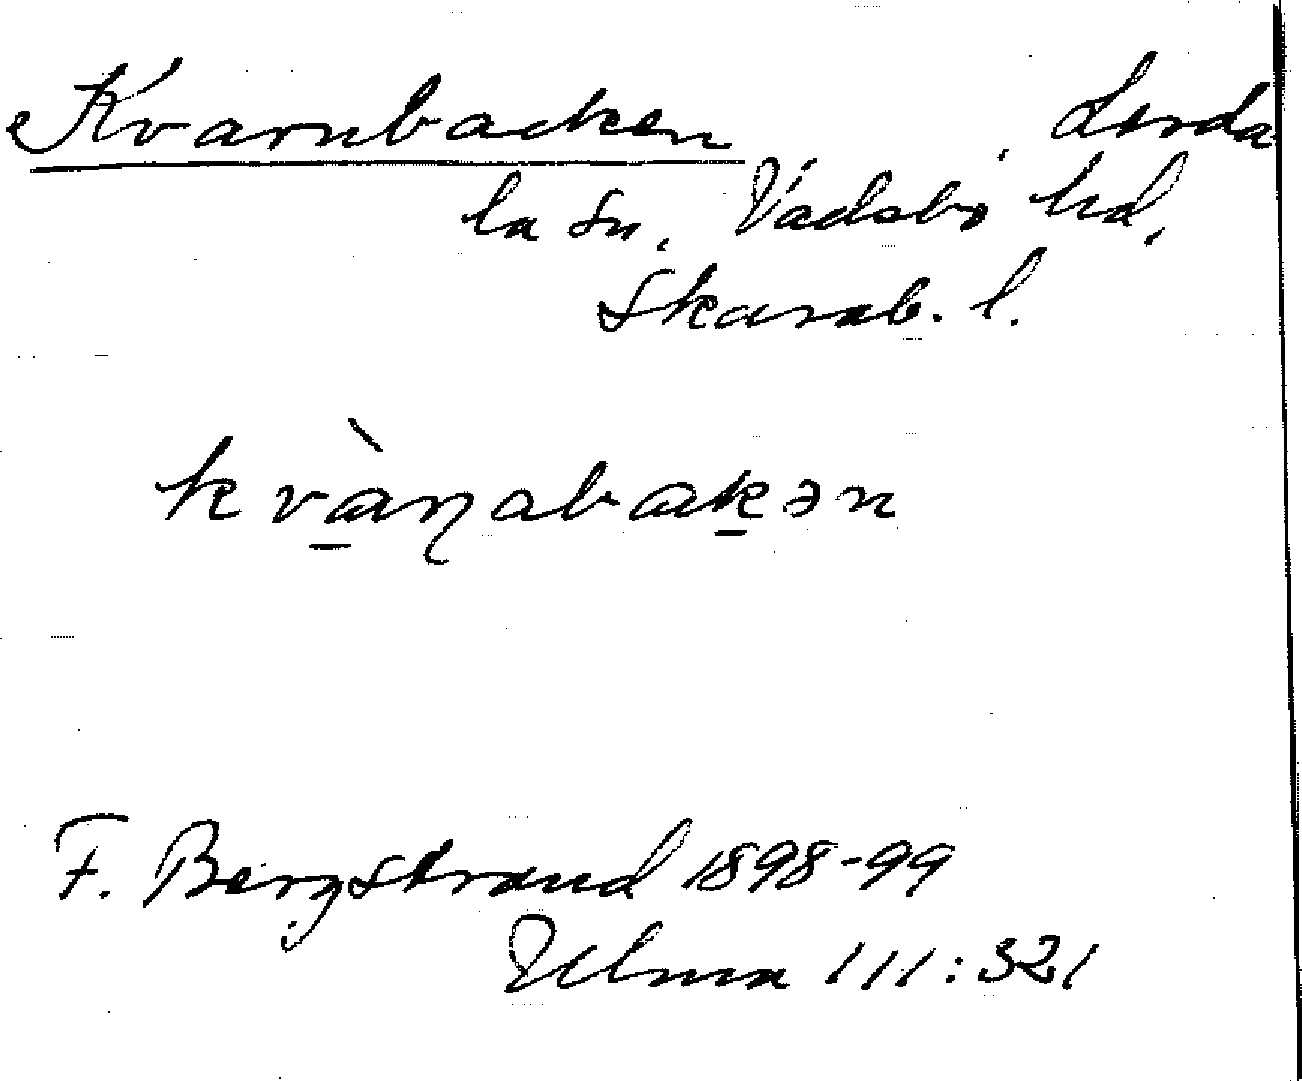 Kvarnbacken , Lerda
la sn. Vadsbo hd,
Skarab. l.
kvàɳabakən
F. Bergstrand 1898-99
Ulma 111:321